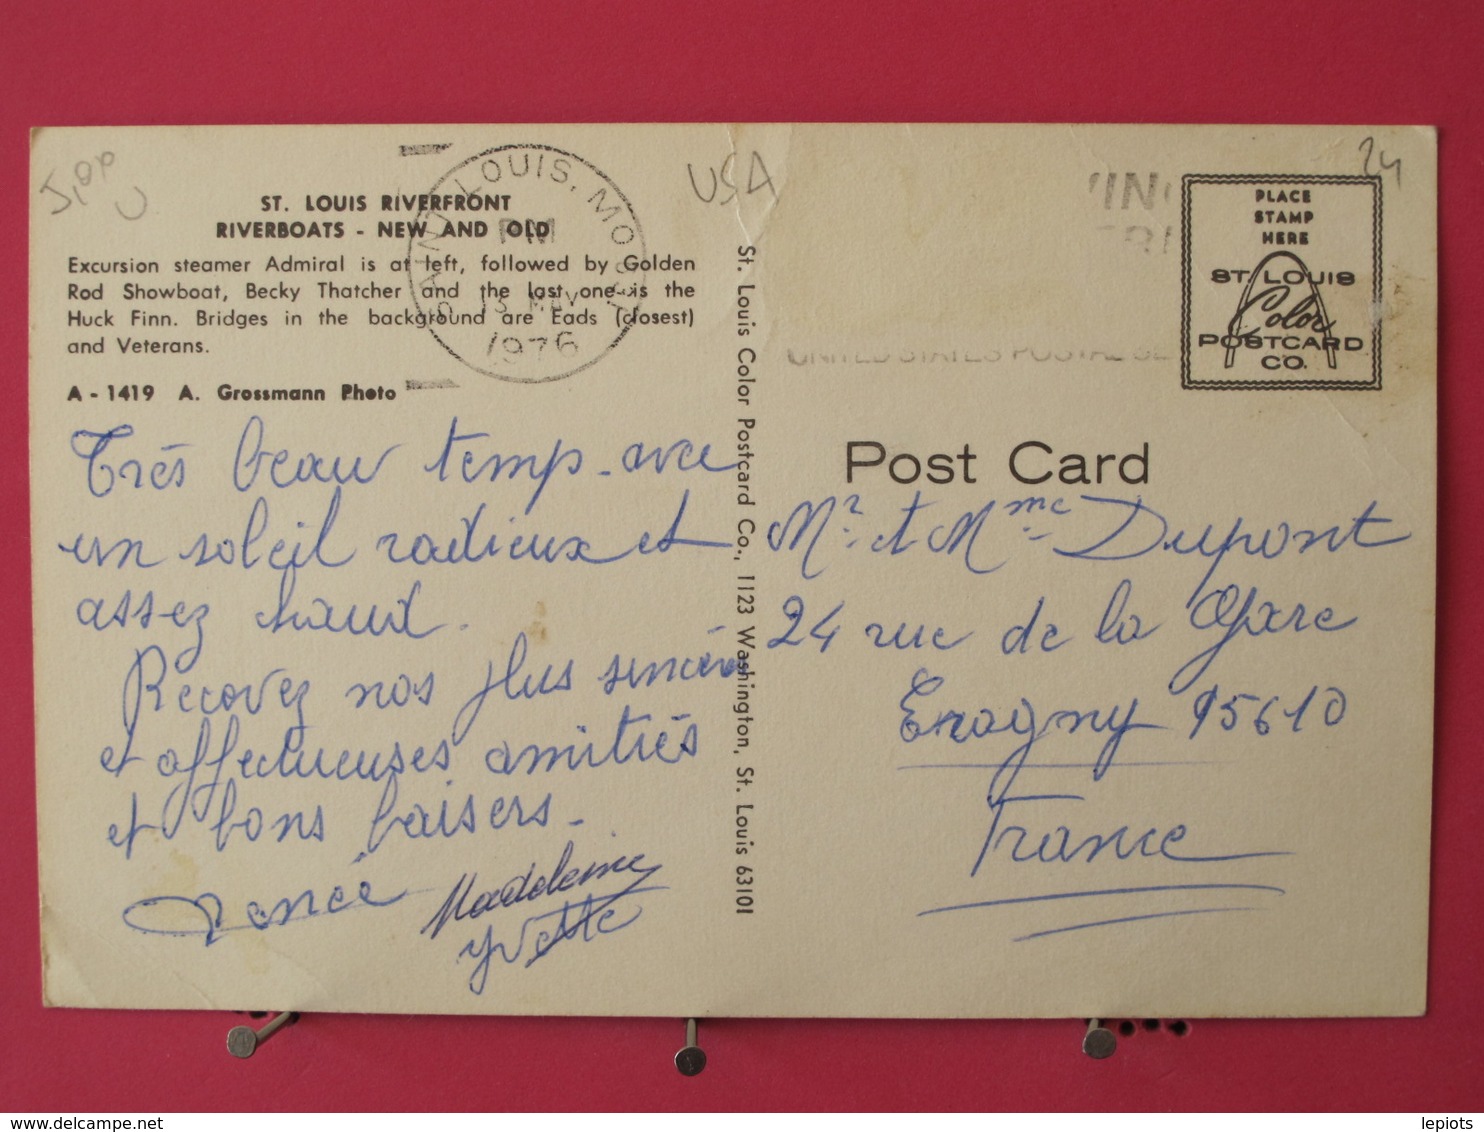 J,00
U
USA
24
ST. LOUIS RIVERFRONT
RIVERBOATS - NEW AND OLD
Excursion steamer Admiral is at left, followed by Golden
Rod Showboat, Becky Thatcher and the last one is the
Huck Finn. Bridges in the background are Eads (closest)
and Veterans.
A - 1419 A. Grossmann Photo
SAINT LOUIS, MO
PM
MAY
1976
Très beau temp - avec
un soleil radieux et
assez chaud.
Recevez nos plus sincères
et affectueuses amitiés
et bons baisers -
Renée Madeleine
Yvette
St. Louis Color Postcard Co., 1123 Washington, St. Louis 63101
UNITED STATES POSTAL SE
PLACE
STAMP
HERE
ST. LOUIS
Color
POSTCARD
CO.
Post Card
Mr. et Mme Dupont
24 rue de la Gare
Eragny 95610
France
lepiots